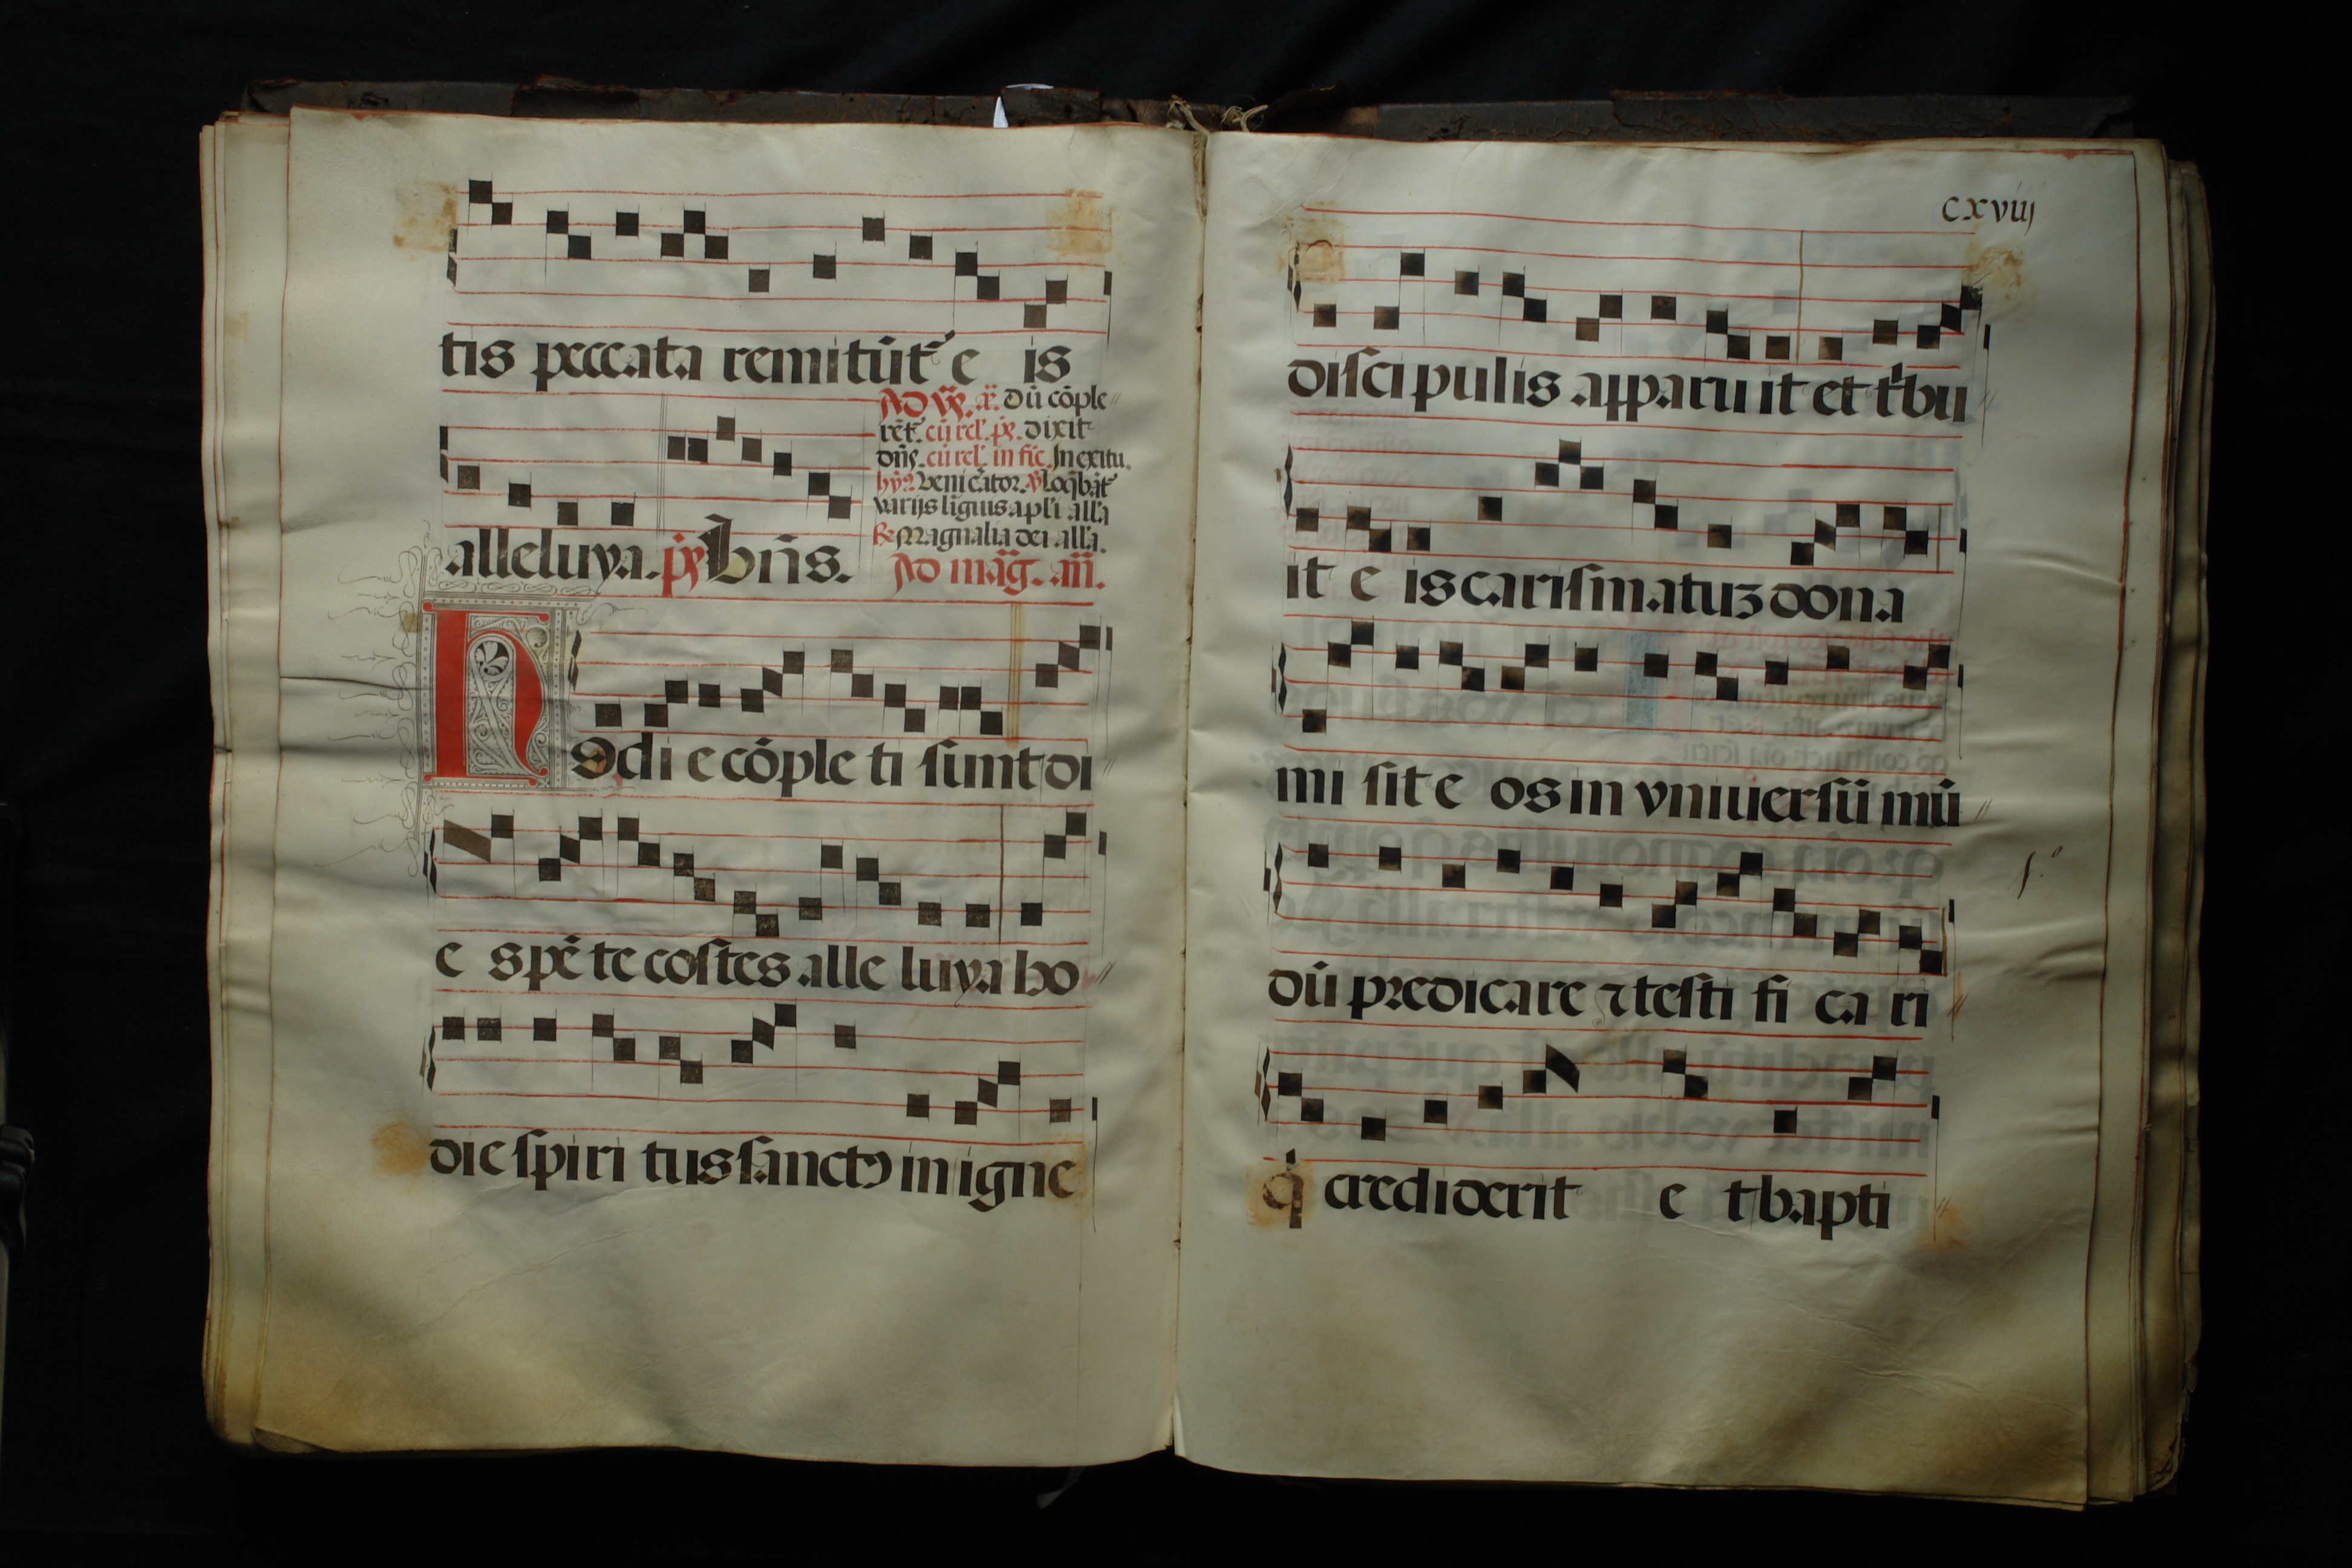 tis peccata remitūt᷑ e is
Ad vp̄. a᷑. Dū cōple
rēt᷑. cū rel᷑. ps̄. dixit
dn̄s. cū rel᷑. in fi᷑e. In exitu.
alleluya. ps̄ Bn̄s.
hȳ᷑. Veni c᷑ator. ℣ Loq̄bāt᷑
varijs liguis apl᷑i all᷑a
℟ Magnalia dei all᷑a.
Ad māg. añ.
Hodi e cōple ti ſunt di
e s pē te coſtes alle luya ho
die ſpiri tus ſanctꝰ in igne
cxviij
diſci pulis apparu it et t᷑bu
it e is cariſmatuʒ dona
mi ſit e os in vniuerſū mū
dū predicare ⁊ teſti fi ca ri
q̇ crediderit e t bapti